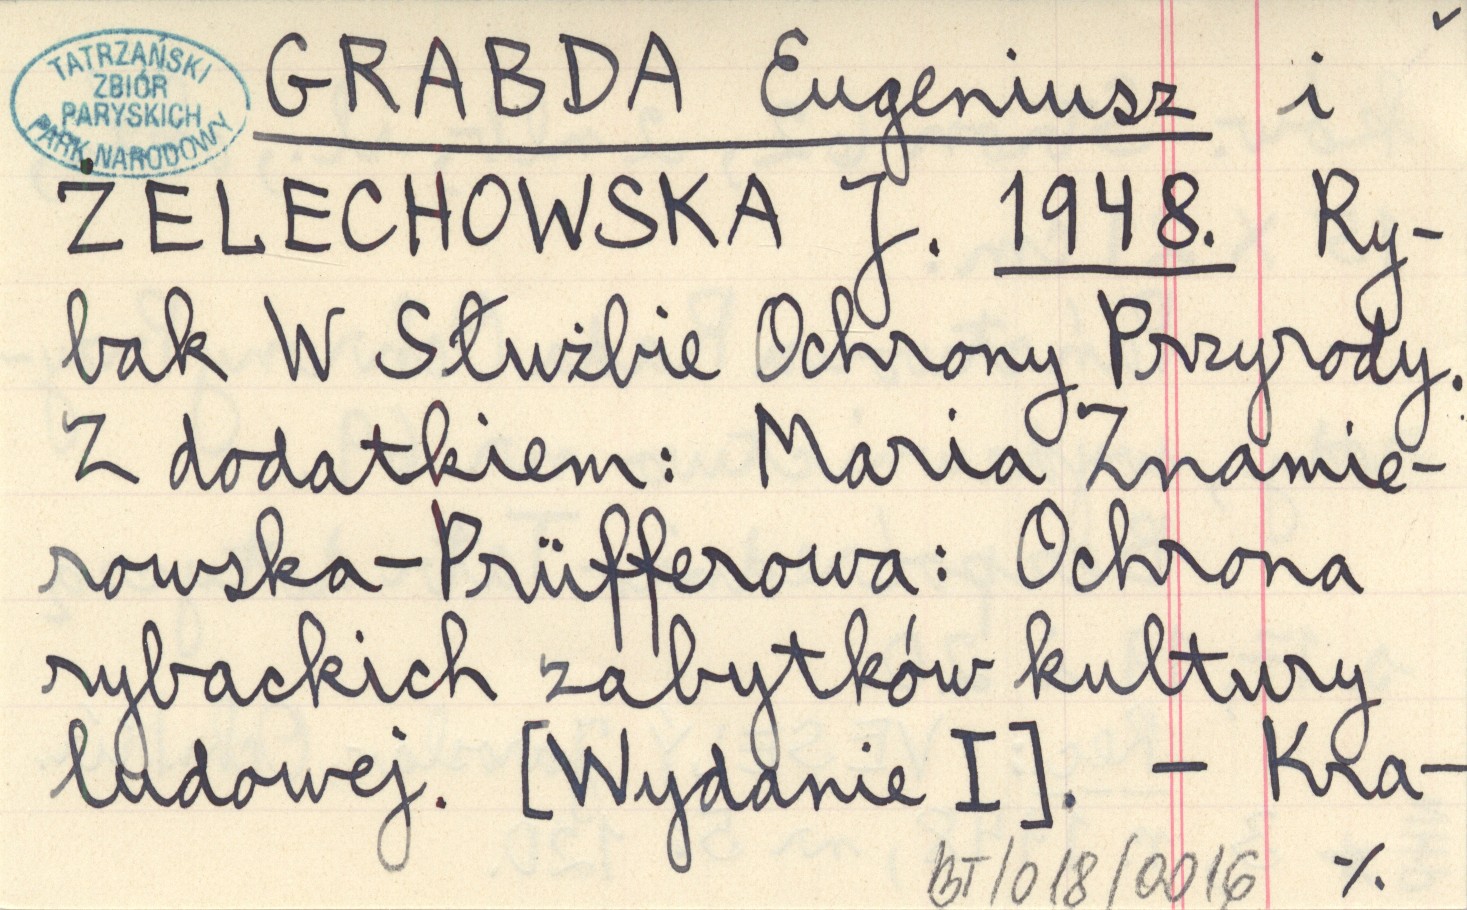 TATRZAŃSKI
ZBIÓR
PARYSKICH
PARK NARODOWY
GRABDA Eugeniusz i
ŻELECHOWSKA J. 1948. Ry-
bak W Służbie Ochrony Przyrody.
Z dodatkiem: Maria Znamie-
rowska-Prüfferowa: Ochrona
rybackich zabytków kultury
ludowej. [Wydanie I]. - Kra-
BT/018/0016 ·/.